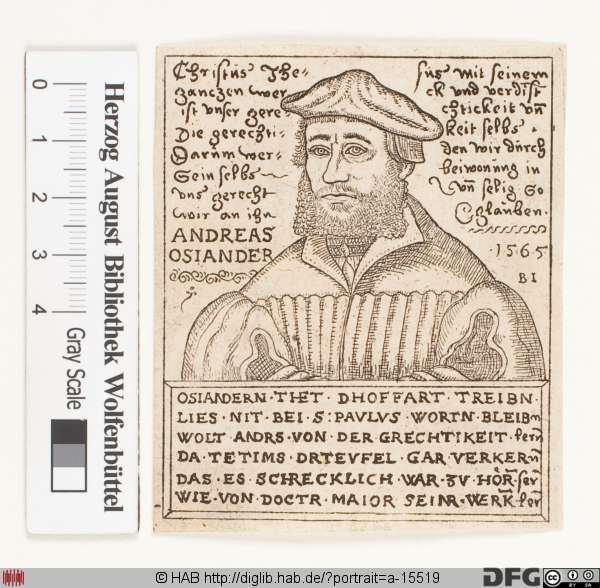 Christus Jhe- sus mit seinem
ganczen wer ck vnd verdist
ist vnser gere chtickeit vn̄
Die gerechti- keit selbs .
Darum wer- den wir durch
Sein selbs beiwonung in
vns gerecht vn̄ selig So
wir an ihn Cglauben.
ANDREAS
OSIANDER
1565
BI
OSIANDERN · THET · DHOFFART · TREIBN
LIES · NIT · BEI · S: PAVLVS · WORTN · BLEIBn
WOLT · ANDRS · VON · DER · GRECHTIKEIT · lern̄
DA · TETIMS · DRTEVFEL · GAR · VERKERn̄
DAS · ES · SCHRECKLICH · WAR · ZV · HÖR̄ · ser̄
WIE · VON · DOCTR · MAIOR · SEINR · WERK ler̄
0
1
2
3
4
Gray Scale
Herzog August Bibliothek Wolfenbüttel
© HAB http://diglib.hab.de/?portrait=a-15519
DFG
CC BY SA